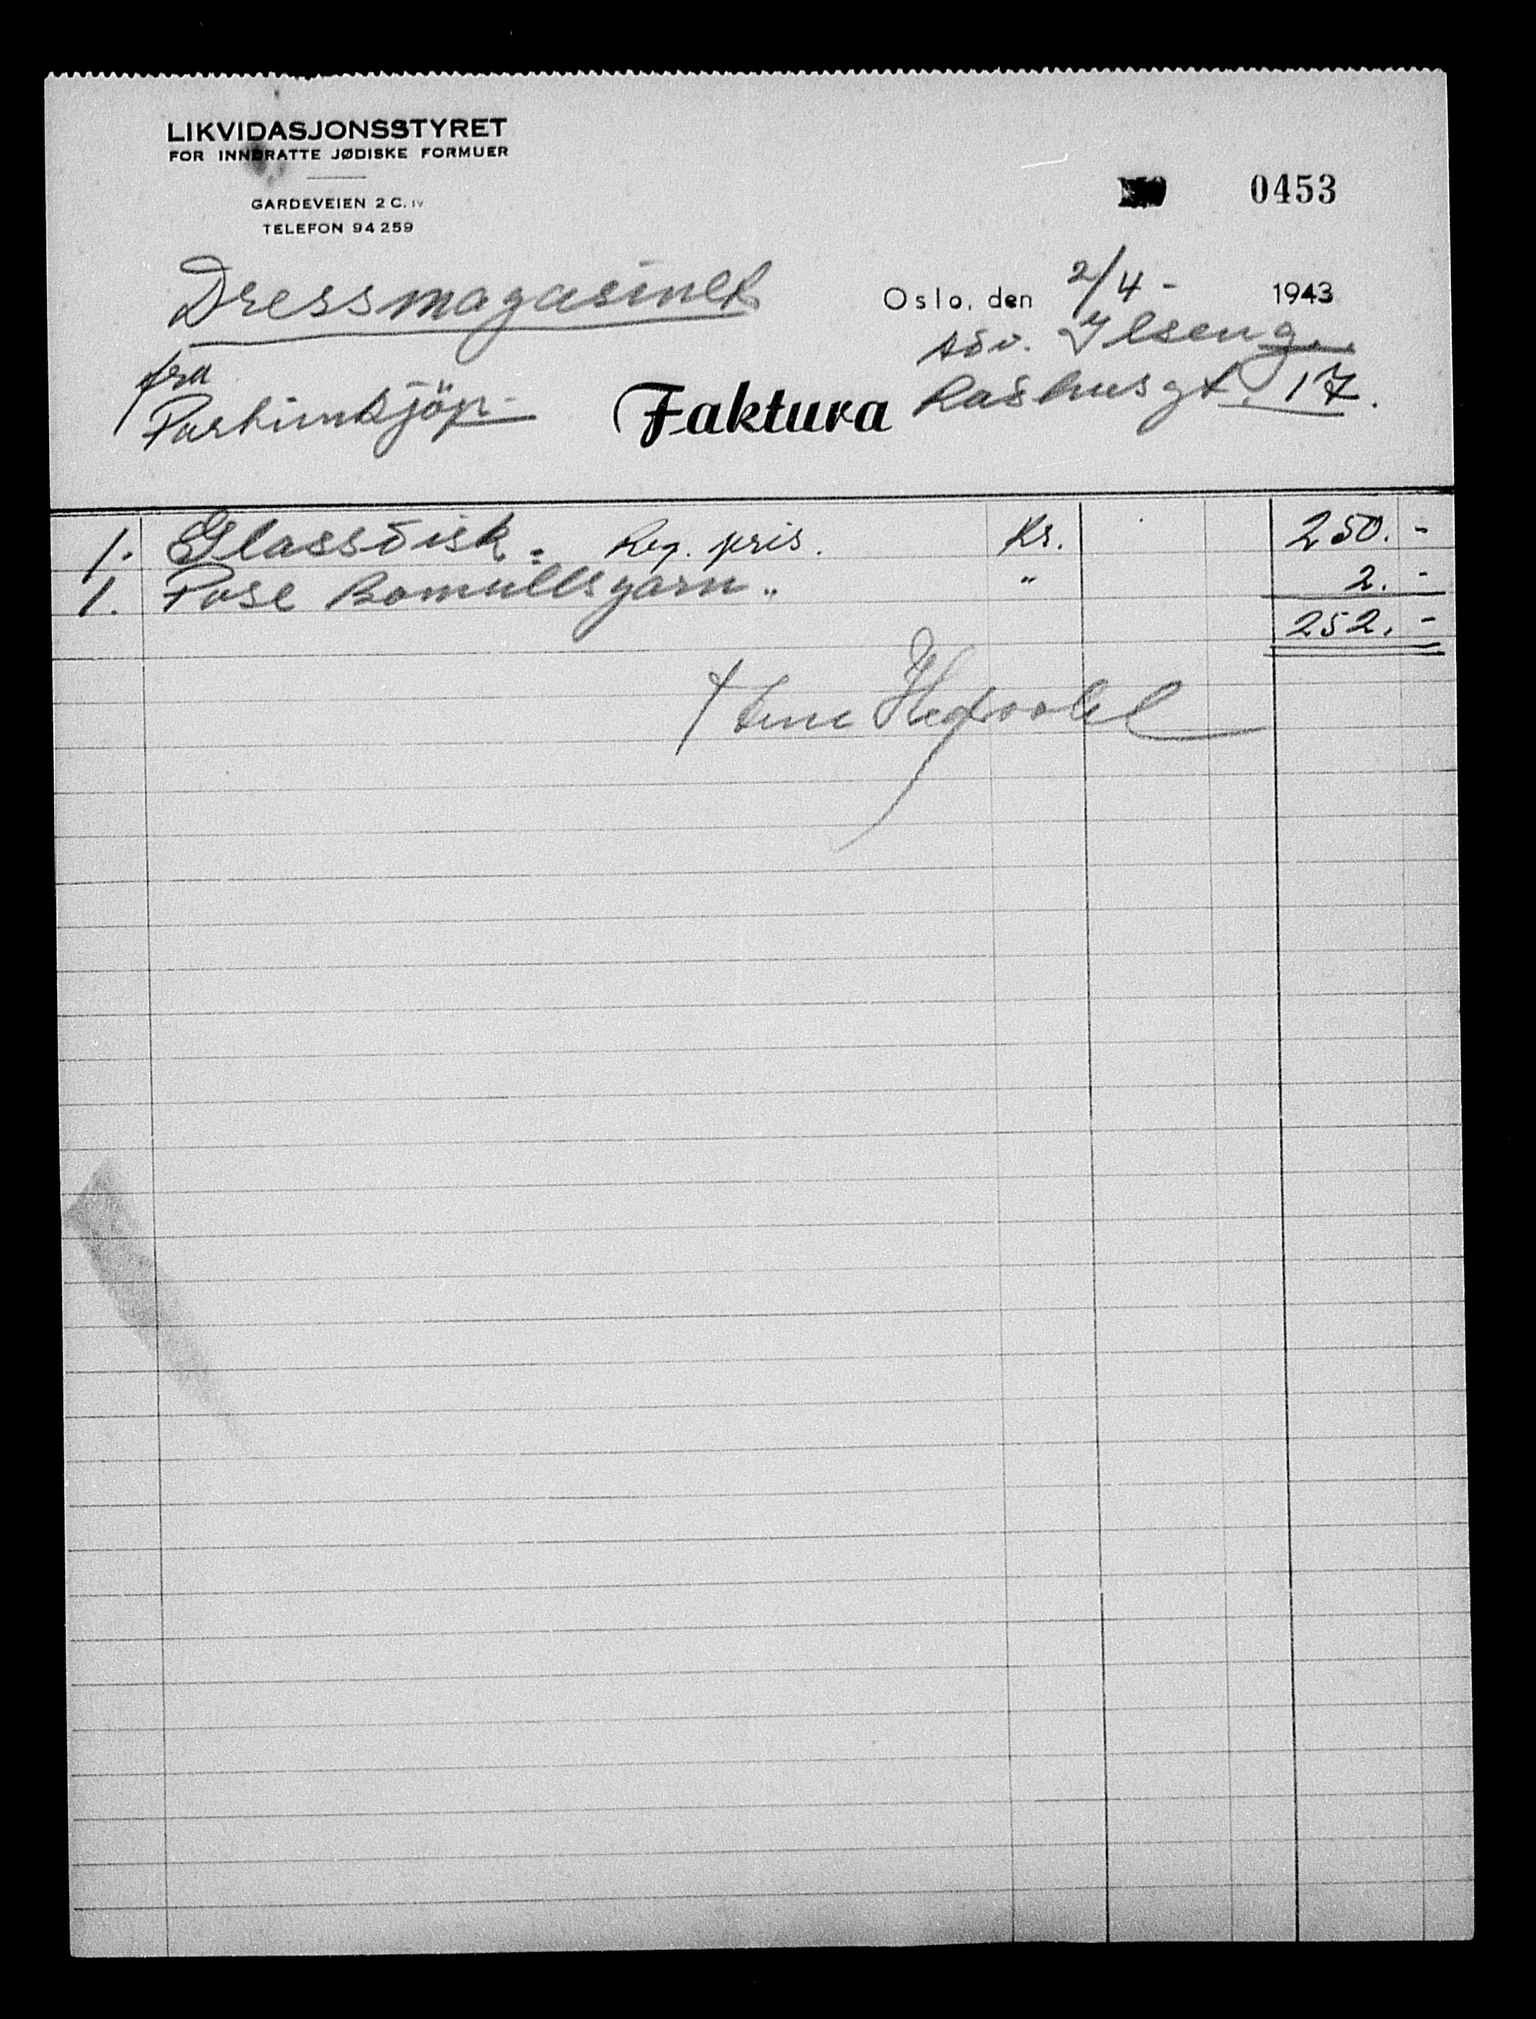 LIKVIDASJONSSTYRET
FOR INNDRATTE JØDISKE FORMUER
GARDEVEIEN 2 C. IV
TELEFON 94259
0453
Dressmagasinet
Oslo, den 2/4- 1943
adv. Ilseng.
fra
Partiinkjöp.
Faktura
Raahusgt. 17.
1. Glassdisk. Reg. pris. Kr. 250.-
1. Pose Bomullsgarn " " 2.-
252.-